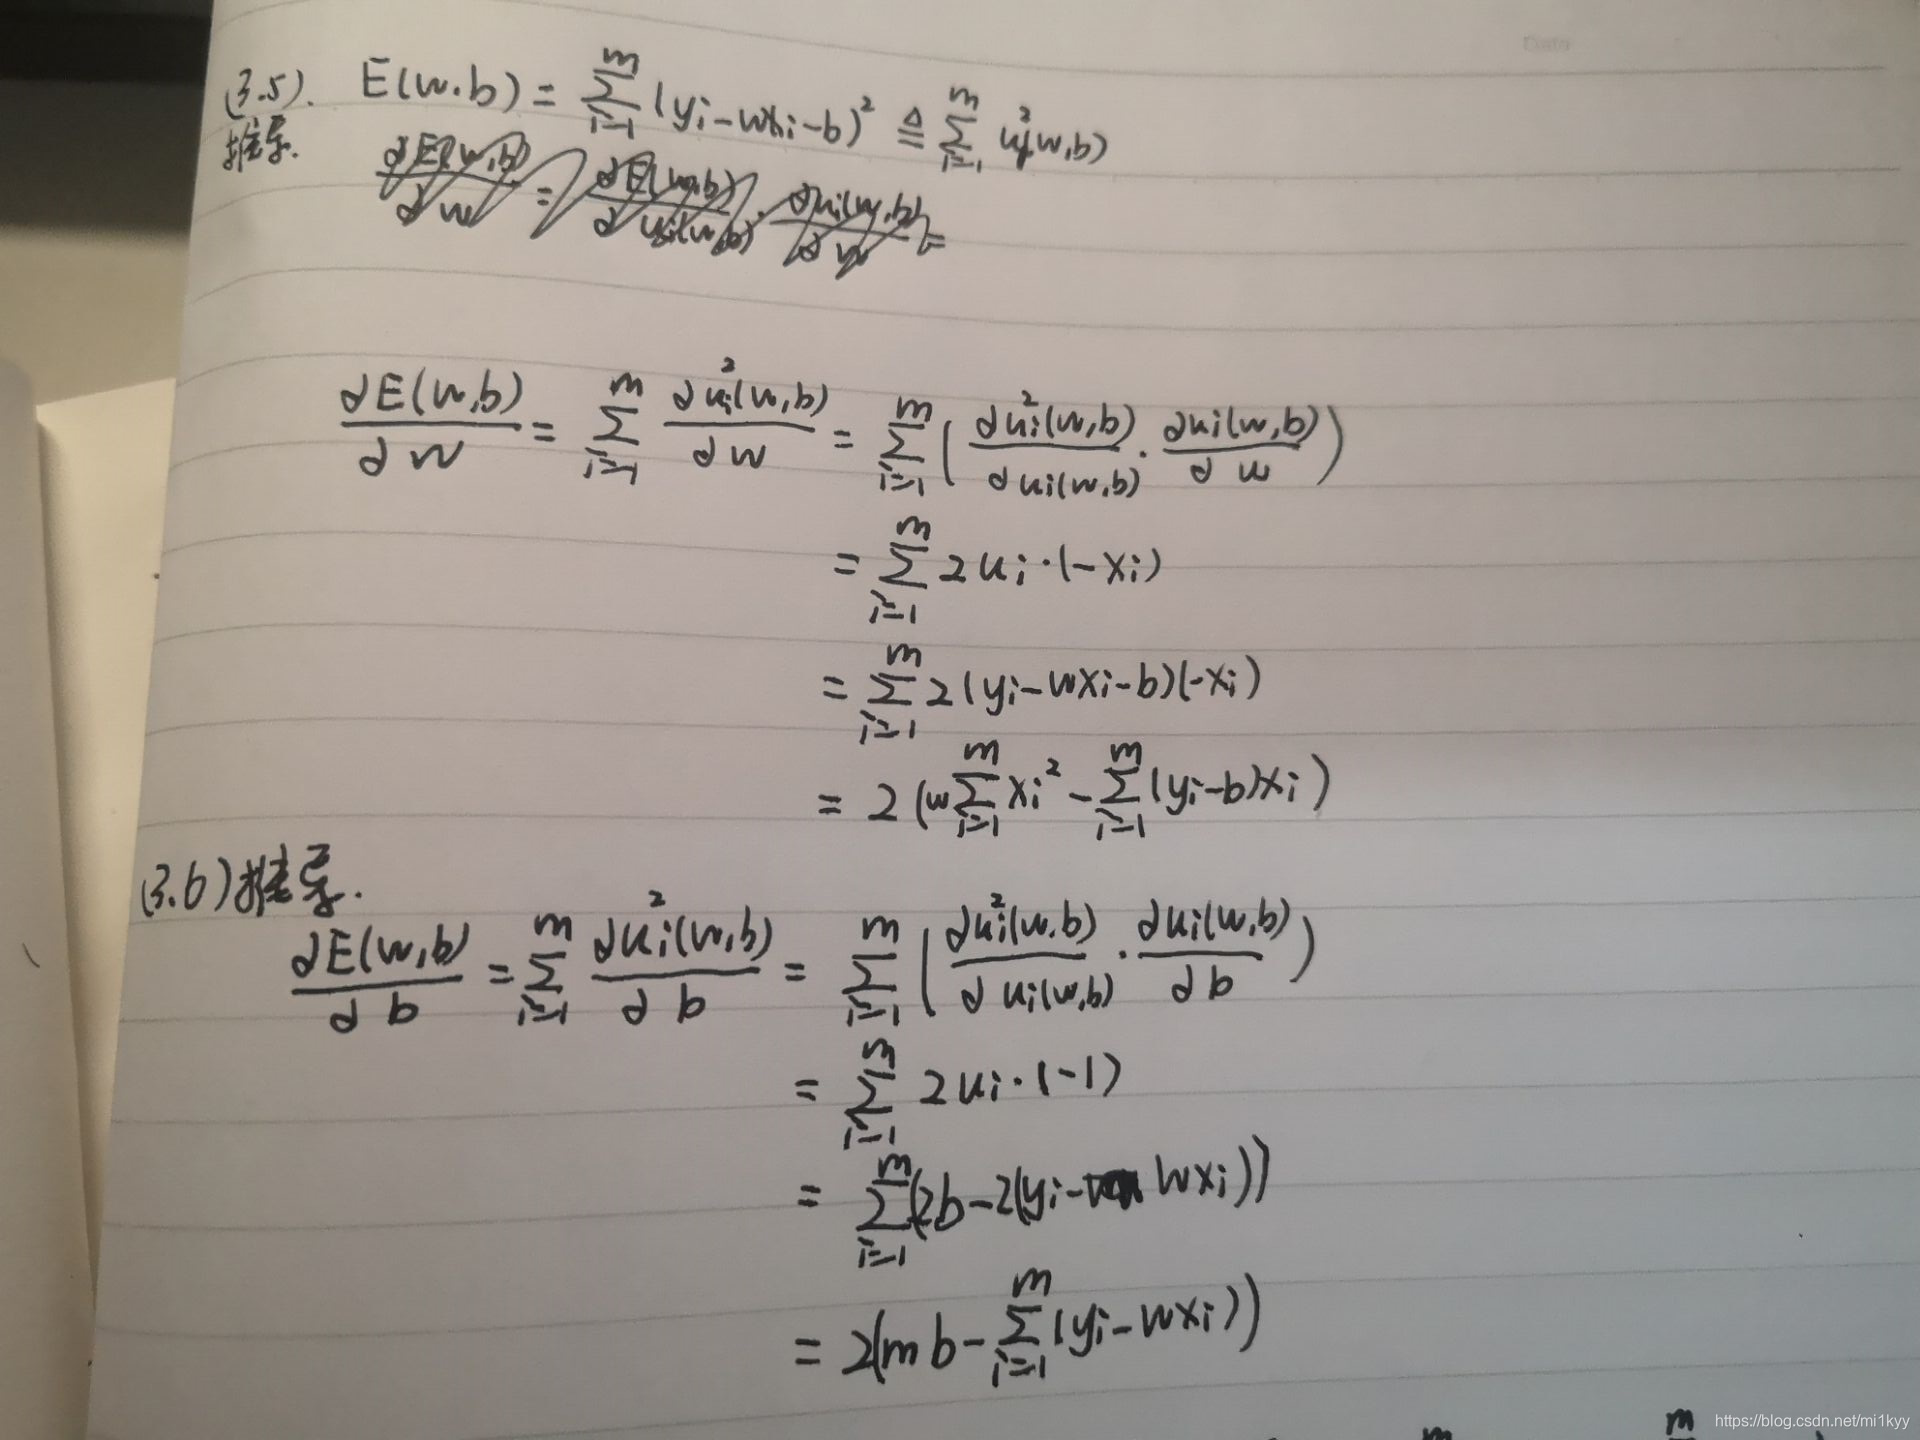 (3.5). E(w.b) = \sum_{i=1}^{m} (y_i - wx_i - b)^2 ≜ \sum_{i=1}^{m} u_i^2(w,b)
推导.
\frac{∂E(w,b)}{∂w} = \frac{∂E(w,b)}{∂u_i(w,b)} · \frac{∂u_i(w,b)}{∂w} =
\frac{∂E(w,b)}{∂w} = \sum_{i=1}^{m} \frac{∂u_i^2(w,b)}{∂w} = \sum_{i=1}^{m} ( \frac{∂u_i^2(w,b)}{∂u_i(w,b)} · \frac{∂u_i(w,b)}{∂w} )
= \sum_{i=1}^{m} 2u_i · (-x_i)
= \sum_{i=1}^{m} 2(y_i - wx_i - b)(-x_i)
= 2 (w \sum_{i=1}^{m} x_i^2 - \sum_{i=1}^{m} (y_i - b)x_i )
(3.6)推导.
\frac{∂E(w,b)}{∂b} = \sum_{i=1}^{m} \frac{∂u_i^2(w,b)}{∂b} = \sum_{i=1}^{m} ( \frac{∂u_i^2(w.b)}{∂u_i(w,b)} · \frac{∂u_i(w,b)}{∂b} )
= \sum_{i=1}^{m} 2u_i · (-1)
= \sum_{i=1}^{m} (2b - 2(y_i - wx_i))
= 2(mb - \sum_{i=1}^{m} (y_i - wx_i))
m m
https://blog.csdn.net/mi1kyy